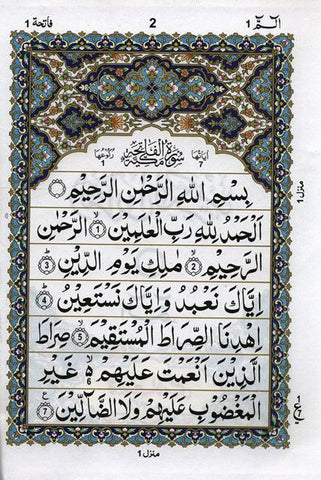 الٓمّٓ ١
2
فاتحة ١
سُوْرَةُ الْفَاتِحَةِ مَكِّيَّةٌ
اٰيَاتُهَا ٧
رُكُوْعُهَا ١
بِسْمِ اللّٰهِ الرَّحْمٰنِ الرَّحِيْمِ
اَلْحَمْدُ لِلّٰهِ رَبِّ الْعٰلَمِيْنَ ۙ﴿١﴾ الرَّحْمٰنِ
الرَّحِيْمِ ۙ﴿٢﴾ مٰلِكِ يَوْمِ الدِّيْنِ ﴿٣﴾
اِيَّاكَ نَعْبُدُ وَاِيَّاكَ نَسْتَعِيْنُ ﴿٤﴾
اِهْدِنَا الصِّرَاطَ الْمُسْتَقِيْمَ ۙ﴿٥﴾ صِرَاطَ
الَّذِيْنَ اَنْعَمْتَ عَلَيْهِمْ ۙ۬ غَيْرِ
الْمَغْضُوْبِ عَلَيْهِمْ وَلَا الضَّآلِّيْنَ ﴿٧﴾
منزل ١
منزل ١